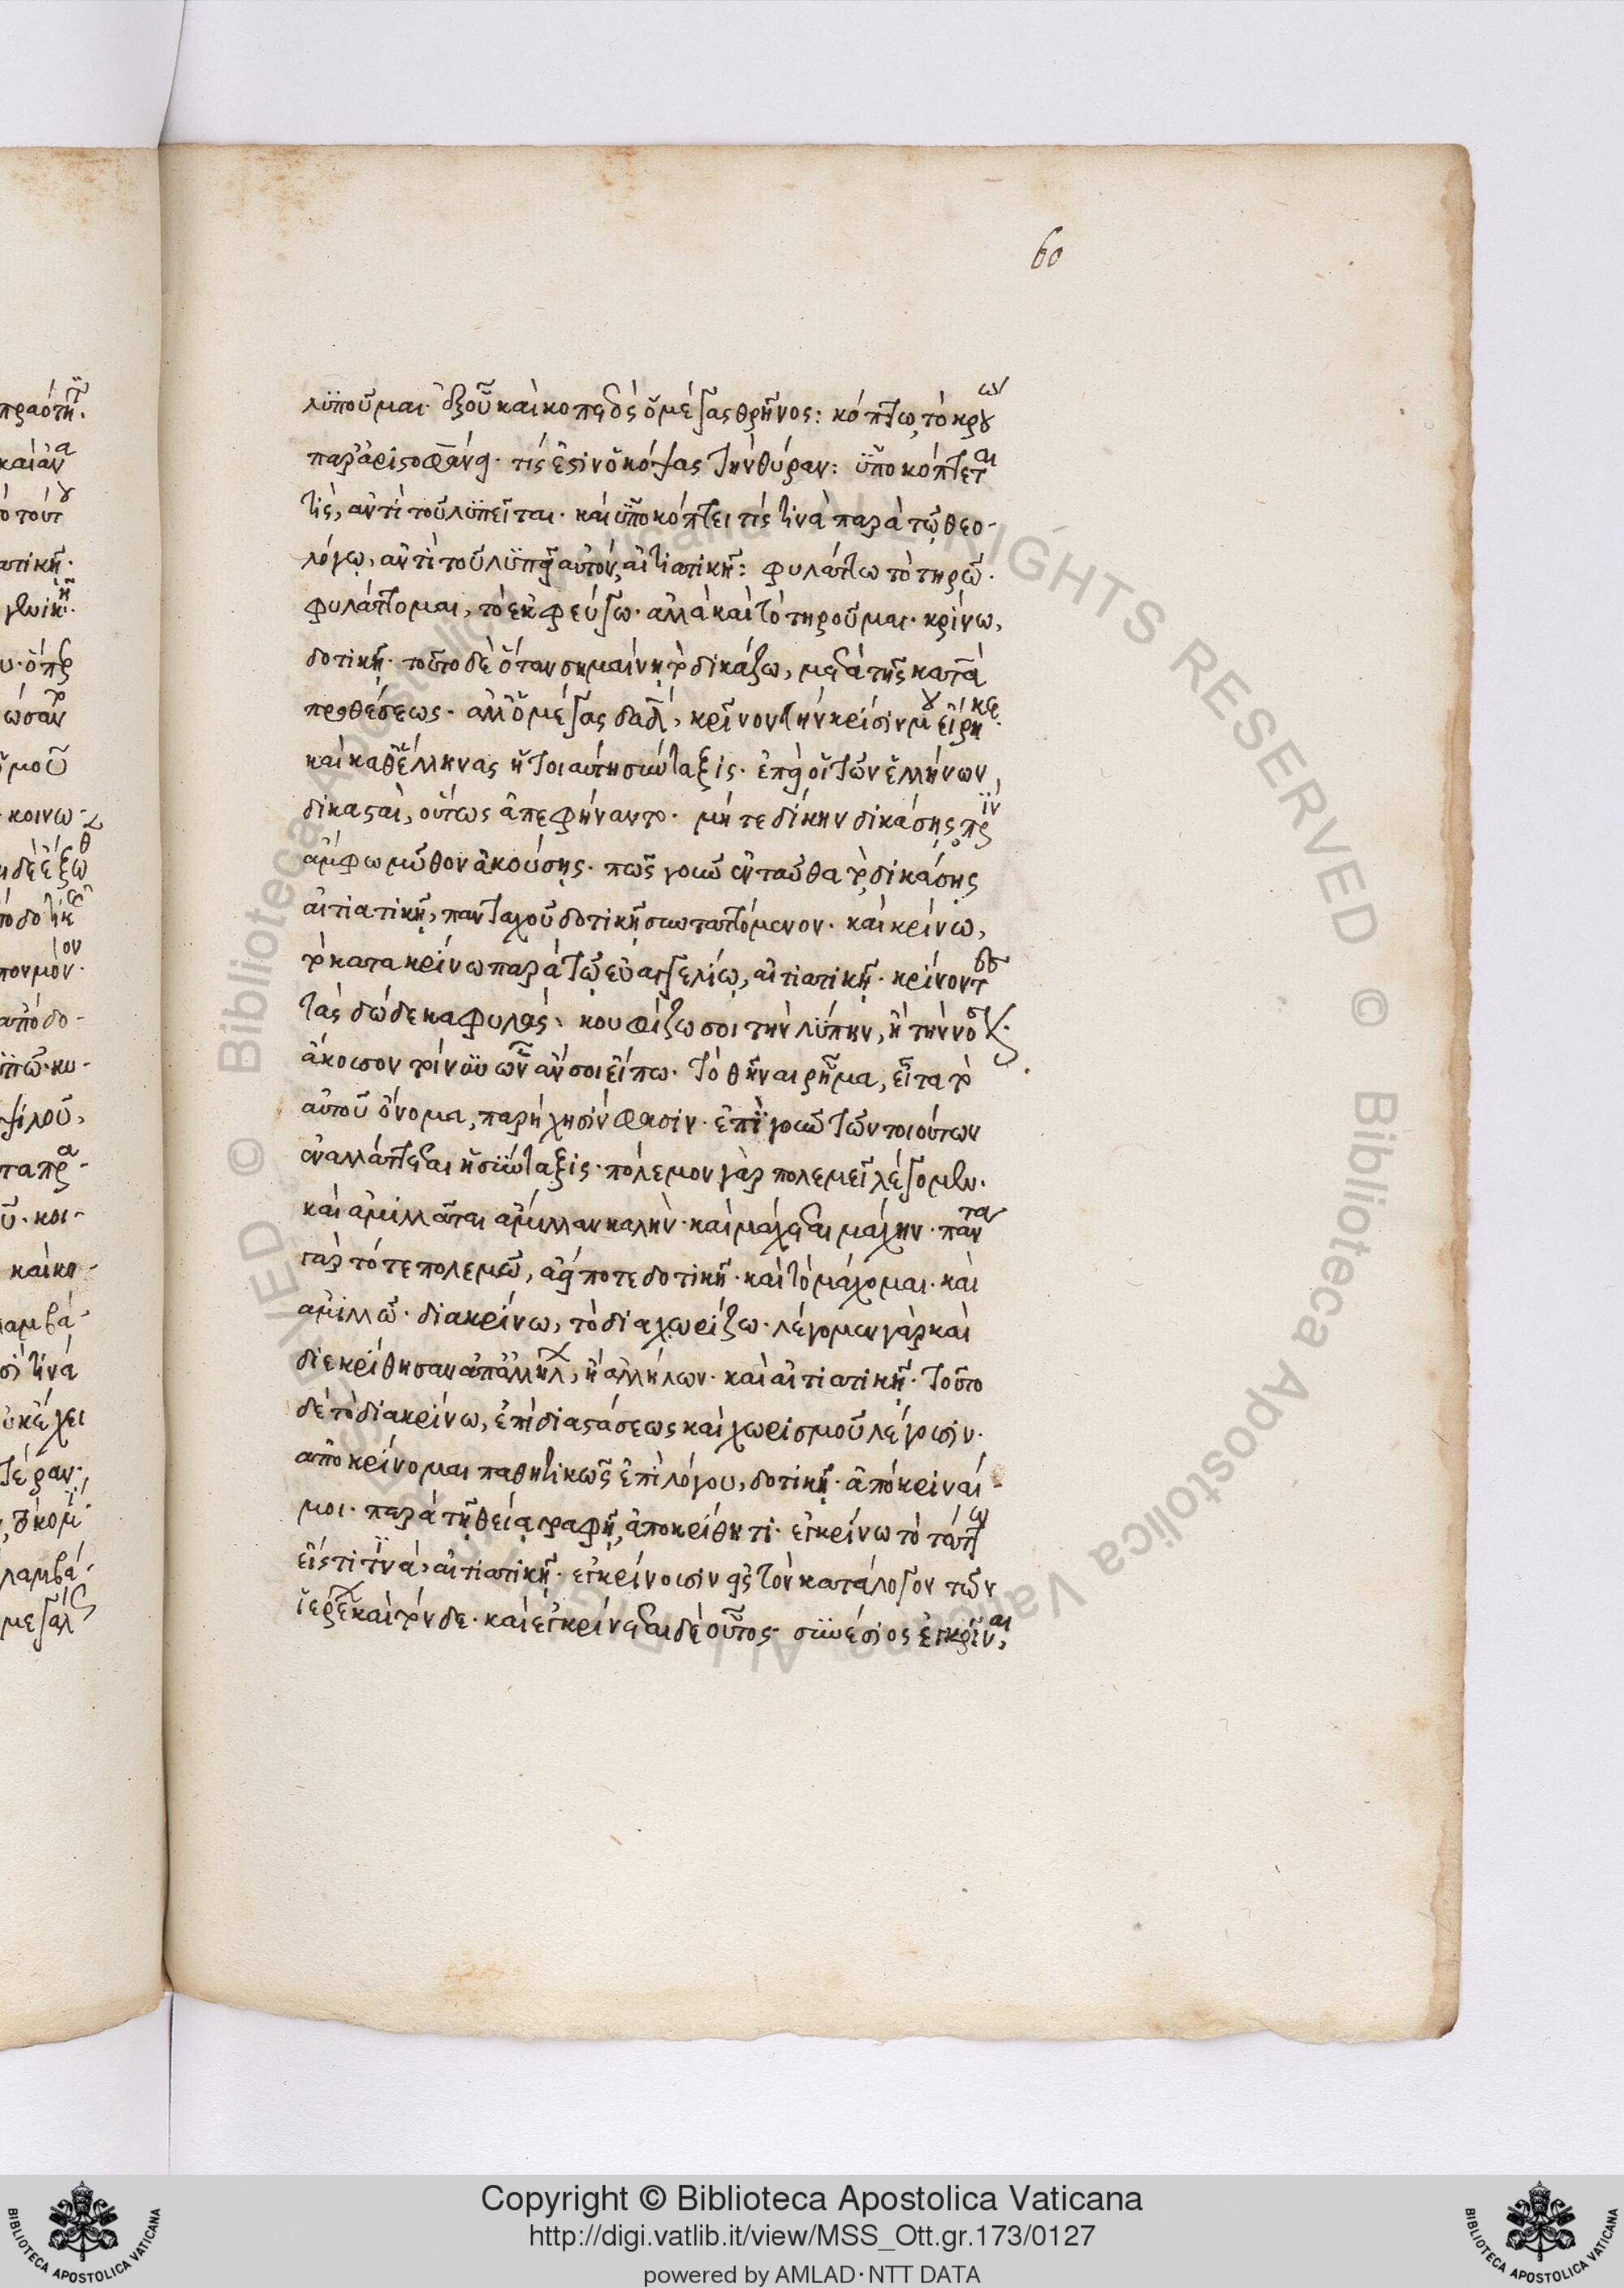 60
λϋποῦμαι· ἐξοῦ καὶ κοπετὸς ὁ μέγας θρῆνος: κόπτω, τὸ κρούω
παρ' ἀριστοφάνει· τίς ἐστιν ὁ κόψας τὴν θύραν: ὑποκόπτεται
τίς, ἀντὶ τοῦ λϋπεῖται· καὶ ὑποκόπτει τίς τινὰ παρὰ τῷ θεο-
λόγῳ, ἀντὶ τοῦ λϋπεῖ αὐτόν, αἰτιατικῇ: φυλάττω τὸ τηρῶ·
φυλάττομαι, τὸ ἐκφεύγω· ἀλλὰ καὶ τὸ τηροῦμαι· κρίνω,
δοτικῇ· τοῦτο δὲ ὅταν σημαίνῃ τὸ δικάζω, μετὰ τῆς κατὰ
προθέσεως· ἀλλ' ὁ μέγας δαδ, κρῖνον τὴν κρίσιν μου εἴρηκε·
καὶ καθ' ἕλληνας ἡ τοιαύτη σύνταξις· ἐπεὶ οἱ τῶν ἑλλήνων
δικασταὶ, οὕτως ἀπεφήναντο· μήτε δίκην δικάσῃς πρὶν
ἀμφω μῦθον ἀκούσῃς· πῶς γοῦν ἐνταῦθα τὸ δικάσῃς
αἰτιατικῇ, πανταχοῦ δοτικῇ συνταττόμενον· καὶ κρίνω,
τὸ κατακρίνω παρὰ τῷ εὐαγγελίῳ, αἰτιατικῇ· κρίνοντες
τὰς δώδεκα φυλάς· κουφίζω σοι τὴν λύπην, ἢ τὴν νόσον·
ἄκουσον τοίνυν ὧν ἄν σοι εἴπω· τὸ θῆναι ῥῆμα, εἶτα τὸ
αὐτοῦ ὄνομα, παρήχησίν φασιν· ἐπὶ γοῦν τῶν τοιούτων
ἐναλλάττεται ἡ σύνταξις· πόλεμον γὰρ πολεμεῖ λέγομεν·
καὶ ἀμιλλᾶται ἅμιλλαν καλήν· καὶ μάχεται μάχην· πάντα
γὰρ τότε πολεμῶ, ἀεί ποτε δοτικῇ· καὶ τὸ μάχομαι· καὶ
ἁμιλλῶ· διακρίνω, τὸ διαχωρίζω· λέγομεν γὰρ καὶ
διεκρίθησαν ἀπ' ἀλλήλων, ἢ ἀλλήλων· καὶ αἰτιατικῇ· τοῦτο
δὲ τὸ διακρίνω, ἐπὶ διαστάσεως καὶ χωρισμοῦ λέγουσιν·
ἀποκρίνομαι παθητικῶς ἐπὶ λόγου, δοτικῇ· ἀπόκριναί
μοι· παρὰ τῇ θείᾳ γραφῇ, ἀποκρίθητι· ἐγκρίνω τὸ τάττω
εἴς τι τινά, αἰτιατικῇ· ἐγκρίνουσιν εἰς τὸν κατάλογον τῶν
ἱερέων καὶ τόνδε· καὶ ἐγκρίνεται δὲ οὗτος· συνέσιος ἐγκρῖναι,
Copyright © Biblioteca Apostolica Vaticana
http://digi.vatlib.it/view/MSS_Ott.gr.173/0127
powered by AMLAD·NTT DATA